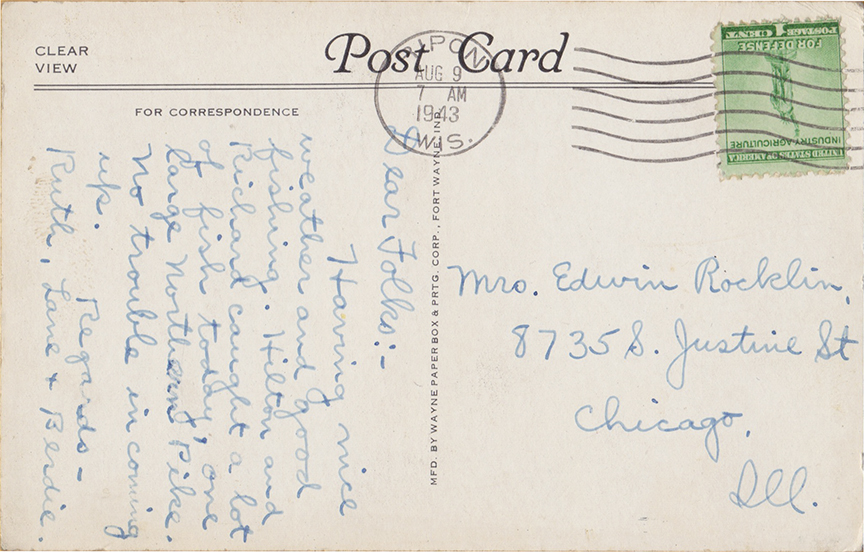 CLEAR
VIEW
Post Card
FOR CORRESPONDENCE
RIPON
AUG 9
7 AM
1943
WIS.
POSTAGE 1 CENT
FOR DEFENSE
INDUSTRY·AGRICULTURE
UNITED STATES OF AMERICA
Dear Folks:-
Having nice
weather and good
fishing. Hilton and
Richard caught a lot
of fish today, one
large Northern Pike.
No trouble in coming
up.
Regards-
Ruth, Lane + Berdie.
MFD. BY WAYNE PAPER BOX & PRTG. CORP., FORT WAYNE, IND.
Mrs. Edwin Rocklin,
8735 S. Justine St
Chicago,
Ill.